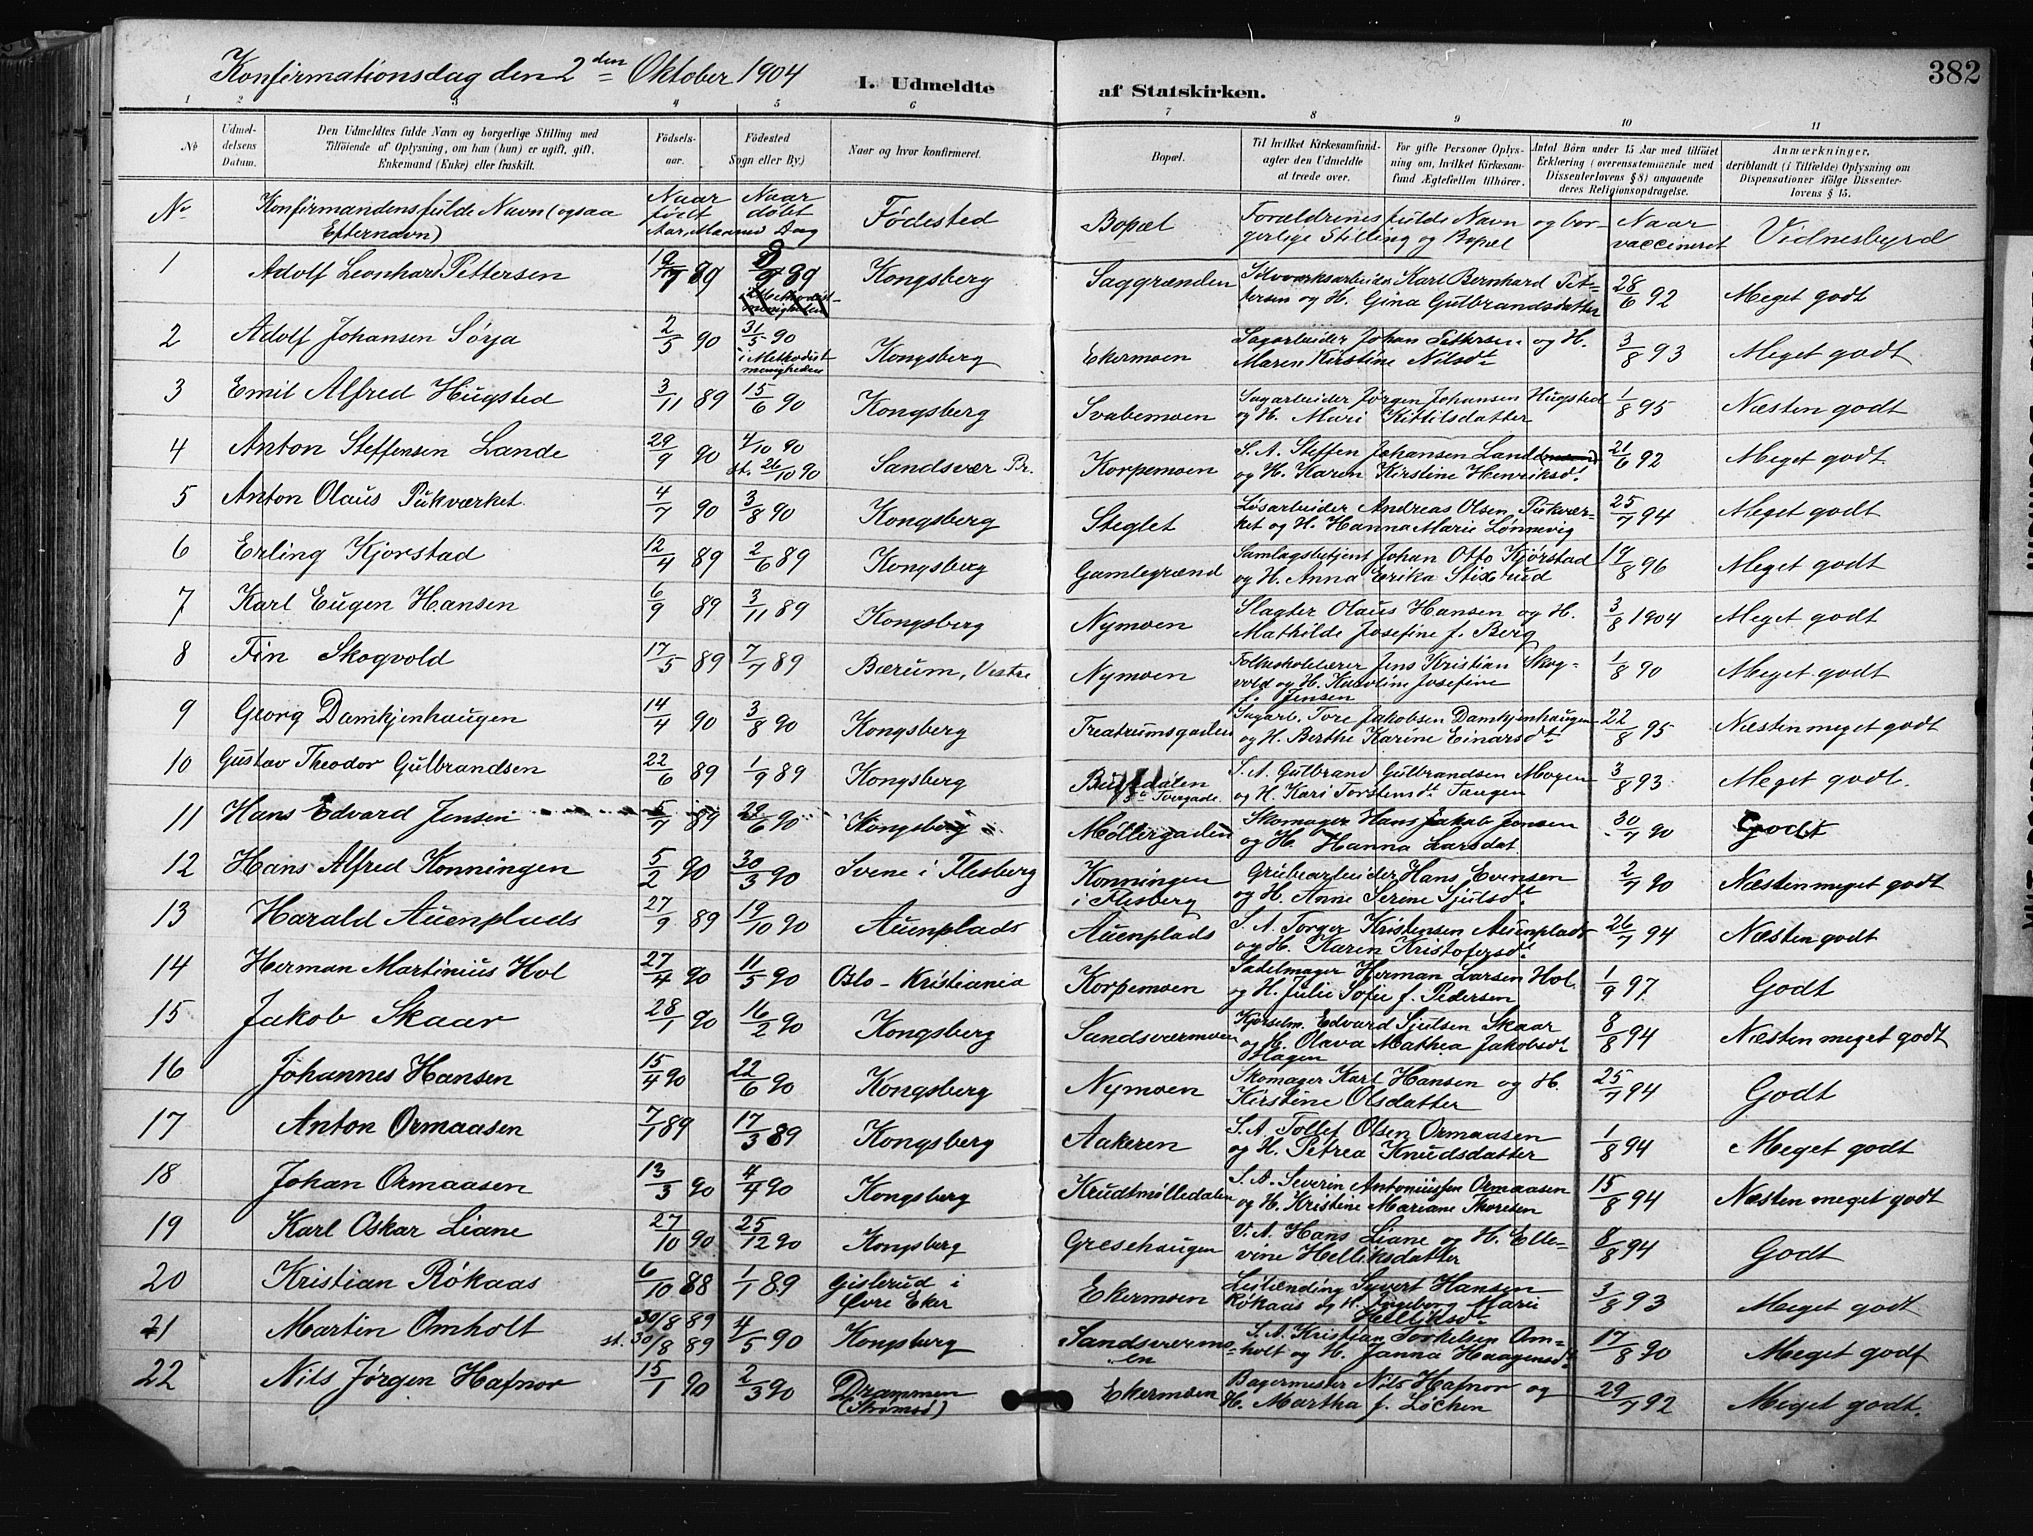 Konfirmationsdag den 2den Oktober 1904
I. Udmeldte af Statskirken.
382
1 2 3 4 5 6 7 8 9 10 11
No
Udmel-
delsens
Datum.
Den Udmeldtes fulde Navn og borgerlige Stilling med
Tilføiende af Oplysning, om han (hun) er ugift, gift,
Enkemand (Enke) eller fraskilt.
Fødsels-
aar.
Fødested
Sogn eller By)
Naar og hvor konfirmeret.
Bopæl.
Til hvilket Kirkesamfund
agter den Udmeldte
at træde over.
For gifte Personer Oplys-
ning om, hvilket Kirkesam-
fund Ægtefællen tilhører.
Antal Børn under 15 Aar med tilføiet
Erklæring (overensstemmende med
Dissenterlovens § 8) angaaende
deres Religionsopdragelse.
Anmærkninger,
deriblandt (i Tilfælde) Oplysning om
Dispensationer ifølge Dissenter-
lovens § 15.
No Konfirmandens fulde Navn (ogsaa
Efternavn)
Naar
født
Aar, Maaned Dag
Naar
døbt
Fødested
Bopæl
Forældrenes fulde Navn og bor-
gerlige Stilling og Bopæl
Naar
vaccineret
Vidnesbyrd
1 Adolf Leonhard Pettersen 89 89 Kongsberg Saggrænden Karl Bernhard Pet-
tersen og H. Gina Gulbrandsdatter 28/6 92 Meget godt
2 Adolf Johansen Sørja 2/5 90 31/5 90 Kongsberg Ekermoen Sagarbeider Johan Pettersen og H.
i Methodist
menigheden
Maren Kirstine Nilsdt 3/8 93 Meget godt
3 Emil Alfred Hugsted 3/11 89 15/6 90 Kongsberg Svabemoen Sagarbeider Jørgen Johansen Hugsted
og H. Mari Kittilsdatter 1/8 95 Næsten godt
4 Anton Steffensen Lande 29/9 90 4/10 90
st. 26/10 90 Sandsvær Pr. Korpemoen S. A. Steffen Johansen Lande
og H. Karen Kirstine Henriksdt 21/6 92 Meget godt
5 Anton Olaus Pukværket 4/7 90 3/8 90 Kongsberg Steglet Løsarbeider Andreas Olsen Pukvær-
ket og H. Hanna Marie Lønnevig 25/7 94 Meget godt
6 Erling Kjørstad 12/4 89 2/6 89 Kongsberg Gamlegrænd Samlagsbetjent Johan Otto Kjørstad
og H. Anna Erika Stixrud 19/8 96 Meget godt
7 Karl Eugen Hansen 6/9 89 3/11 89 Kongsberg Nymoen Slagter Olaus Hansen og H.
Mathilde Josefine f. Berg 3/8 1904 Meget godt
8 Fin Skogvold 17/5 89 7/7 89 Bærum, Vestre Nymoen Folkeskolelærer Jens Kristian Skog-
vold og H. Karoline Josefine
f. Jensen 1/8 90 Meget godt
9 Georg Damkjenhaugen 14/4 90 3/8 90 Kongsberg Treatrumsgaden Sagarb. Tore Jakobsen Damkjenhaugen
og H. Berthe Karine Einarsdt 22/8 95 Næsten meget godt
10 Gustav Theodor Gulbrandsen 22/6 89 1/9 89 Kongsberg S. A. Gulbrand Gulbrandsen Mogen
og H. Kari Torstensdt Taugen 3/8 93 Meget godt.
11 Hans Edvard Jensen 5/7 89 29/6 90 Kongsberg Møllergaden Skomager Hans Jakob Jensen
og H. Hanna Larsdat. 30/7 90 Godt
12 Hans Alfred Konningen 5/2 90 30/3 90 Svene i Flesberg Konningen
i Flesberg Grubearbeider Hans Evensen
og H. Anne Serene Sjulsdt 2/7 90 Næsten meget godt
13 Harald Auenplads 27/9 89 19/10 90 Auenplads Auenplads S. A. Torger Kristensen Auenplads
og H. Karen Kristofersdt 26/7 94 Næsten godt
14 Herman Martinius Hol 27/4 90 11/5 90 Oslo - Kristiania Korpemoen Sadelmager Herman Larsen Hol
og H. Julie Sofie f. Pedersen 1/9 97. Godt
15 Jakob Skaar 28/1 90 16/2 90 Kongsberg Sandsværmoen Kjørselm. Edvard Sjulsen Skaar
og H. Olava Mathea Jakobsdt
Hagen 8/8 94 Næsten meget godt
16 Johannes Hansen 15/4 90 22/6 90 Kongsberg Nymoen Skomager Karl Hansen og H.
Kirstine Olsdatter 25/7 94 Godt
17 Anton Ormaasen 7/1 89 17/3 89 Kongsberg Aakeren S. A. Tollef Olsen Ormaasen
og H. Petrea Knudsdatter 1/8 94 Meget godt
18 Johan Ormaasen 13/3 90 4/4 90 Kongsberg Krudtmølledalen S. A. Severin Antoniussen Ormaasen
og H. Kristine Mariane Skoresen 15/8 94 Næsten meget godt
19 Karl Oskar Liane 27/10 90 25/12 90 Kongsberg Gresehaugen V. A. Hans Liane og H. Elle-
vine Helliksdatter 8/8 94 Godt
20 Kristian Røkaas 6/10 88 1/1 89 Gislerud i
Øvre Eker Ekermoen Leilænding Syvert Hansen
Røkaas og H. Ingeborg Marie
Helliksdt 3/8 93 Meget godt
21 Martin Omholt 30/8 89
st. 30/8 89 4/5 90 Kongsberg Sandsværmo-
en S. A. Kristian Torkelsen Om-
holt og H. Janna Haagensdt 17/8 90 Meget godt
22 Nils Jørgen Hafnor 15/1 90 2/3 90 Drammen
(Strømsø) Ekermoen Bagermester Nils Hafnor og
H. Martha f. Løchen 29/7 92 Meget godt.